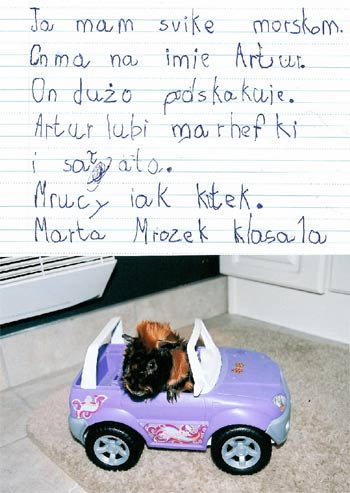 Ja mam svike morskom.
Onma na imie Artur.
On dużo podskakuje.
Artur lubi marhefki
i sałata.
Mrucy iak kitek.
Marta Mrozek klasa 1a